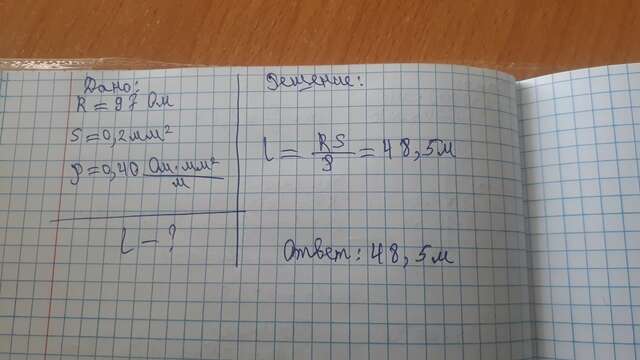 Дано:
R = 97 Ом
S = 0,2 мм²
ρ = 0,40 Ом·мм²/м
l - ?
Решение:
l = RS/ρ = 48,5м
Ответ: 48,5м